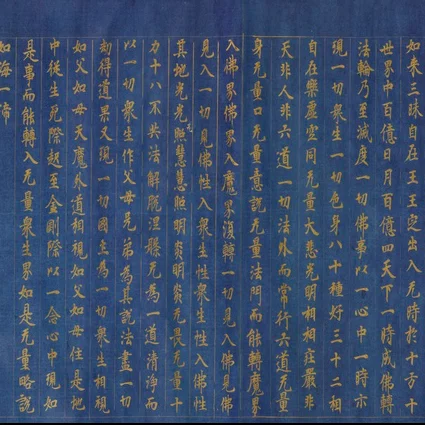 如来三昧自在王王定出入无時於十方十
世界中百億日月百億四天下一時成佛轉
法輪乃至滅度一切佛事以一心中一時示
現一切衆生一切色身八十種好三十二相
自在樂虛空同无量大悲光明相相莊嚴非
天非人非六道一切法外而常行六道无量
身无量口无量意說无量法門而能轉魔界
入佛界佛界入魔界復轉一切見入佛見佛
見入一切見佛性入衆生性衆生性入佛性
其地光光照慧慧照明炎明炎无畏无量十
力十八不共法解脫涅槃无為一道清淨而
以一切衆生作父母兄弟為其說法盡一切
劫得道果又現一切國土為一切衆生相視
如父如母天魔外道相視如父如母住是地
中從生死際起至金剛際以一念心中現如
是事而能轉入无量衆生界如是无量略說
如海一渧